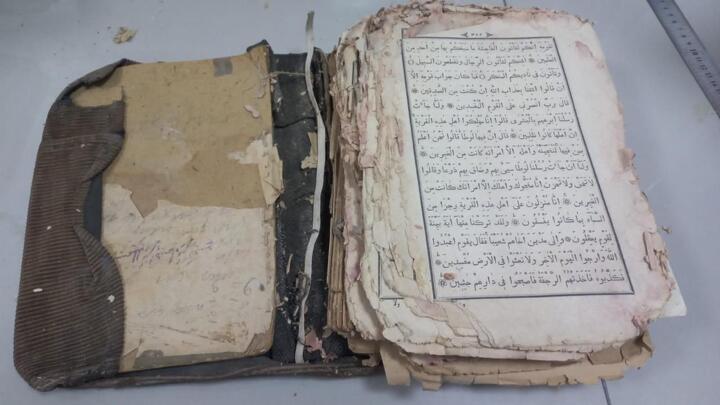 لِقَوْمِهِ اِنَّكُمْ لَتَاْتُونَ الْفَاحِشَةَ مَا سَبَقَكُمْ بِهَا مِنْ اَحَدٍ مِنَ
الْعٰلَمِينَ اَئِنَّكُمْ لَتَاْتُونَ الرِّجَالَ وَتَقْطَعُونَ السَّبِيلَ
وَتَاْتُونَ فِي نَادِيكُمُ الْمُنْكَرَ فَمَا كَانَ جَوَابَ قَوْمِهِ اِلَّا
اَنْ قَالُوا ائْتِنَا بِعَذَابِ اللّٰهِ اِنْ كُنْتَ مِنَ الصّٰدِقِينَ
قَالَ رَبِّ انْصُرْنِي عَلَى الْقَوْمِ الْمُفْسِدِينَ وَلَمَّا جَاءَتْ
رُسُلُنَا اِبْرٰهِيمَ بِالْبُشْرٰى قَالُوا اِنَّا مُهْلِكُوا اَهْلِ هٰذِهِ الْقَرْيَةِ
اِنَّ اَهْلَهَا كَانُوا ظٰلِمِينَ قَالَ اِنَّ فِيهَا لُوطًا قَالُوا نَحْنُ اَعْلَمُ
بِمَنْ فِيهَا لَنُنَجِّيَنَّهُ وَاَهْلَهُ اِلَّا امْرَاَتَهُ كَانَتْ مِنَ الْغٰبِرِينَ
وَلَمَّا اَنْ جَاءَتْ رُسُلُنَا لُوطًا سِيءَ بِهِمْ وَضَاقَ بِهِمْ ذَرْعًا وَقَالُوا
لَا تَخَفْ وَلَا تَحْزَنْ اِنَّا مُنَجُّوكَ وَاَهْلَكَ اِلَّا امْرَاَتَكَ كَانَتْ مِنَ
الْغٰبِرِينَ اِنَّا مُنْزِلُونَ عَلٰى اَهْلِ هٰذِهِ الْقَرْيَةِ رِجْزًا مِنَ
السَّمَاءِ بِمَا كَانُوا يَفْسُقُونَ وَلَقَدْ تَرَكْنَا مِنْهَا اٰيَةً بَيِّنَةً
لِقَوْمٍ يَعْقِلُونَ وَاِلٰى مَدْيَنَ اَخَاهُمْ شُعَيْبًا فَقَالَ يٰقَوْمِ اعْبُدُوا
اللّٰهَ وَارْجُوا الْيَوْمَ الْاٰخِرَ وَلَا تَعْثَوْا فِي الْاَرْضِ مُفْسِدِينَ
فَكَذَّبُوهُ فَاَخَذَتْهُمُ الرَّجْفَةُ فَاَصْبَحُوا فِي دَارِهِمْ جٰثِمِينَ